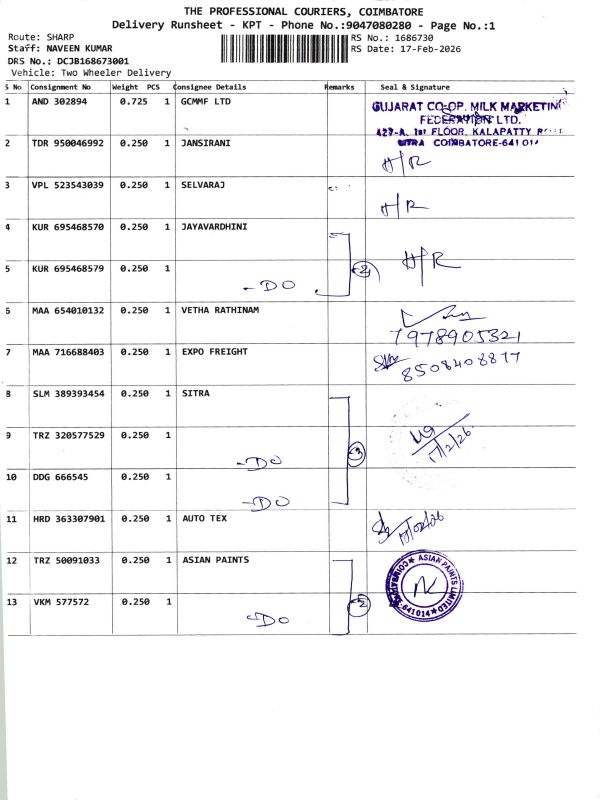 THE PROFESSIONAL COURIERS, COIMBATORE
Delivery Runsheet - KPT - Phone No.:9047080280 - Page No.:1
Route: SHARP RS No.: 1686730
Staff: NAVEEN KUMAR RS Date: 17-Feb-2026
DRS No.: DCJB168673001
Vehicle: Two Wheeler Delivery
S No Consignment No Weight PCS Consignee Details Remarks Seal & Signature
1 AND 302894 0.725 1 GCMMF LTD
GUJARAT CO-OP. MILK MARKETING
FEDERATION LTD.
427-A, 1st FLOOR, KALAPATTY
SITRA COIMBATORE-641 014
2 TDR 950046992 0.250 1 JANSIRANI
H/R
3 VPL 523543039 0.250 1 SELVARAJ
H/R
4 KUR 695468570 0.250 1 JAYAVARDHINI
H/R
5 KUR 695468579 0.250 1 -DO 2
6 MAA 654010132 0.250 1 VETHA RATHINAM
7978905321
7 MAA 716688403 0.250 1 EXPO FREIGHT
8508408877
8 SLM 389393454 0.250 1 SITRA
9 TRZ 320577529 0.250 1 -DO 3
17/2/26
10 DDG 666545 0.250 1 -DO
11 HRD 363307901 0.250 1 AUTO TEX
17/02/26
12 TRZ 50091033 0.250 1 ASIAN PAINTS
ASIAN PAINTS LIMITED
COIMBATORE-641014
13 VKM 577572 0.250 1 -DO 2